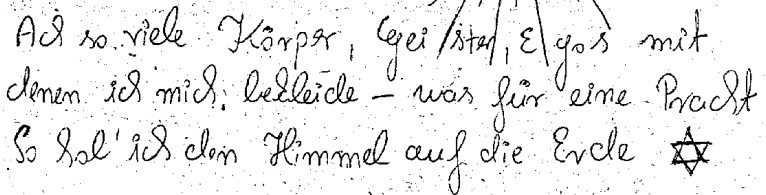 Ach so viele Körper, Geister, Egos mit
denen ich mich bekleide – was für eine Pracht
So hol' ich den Himmel auf die Erde ✡